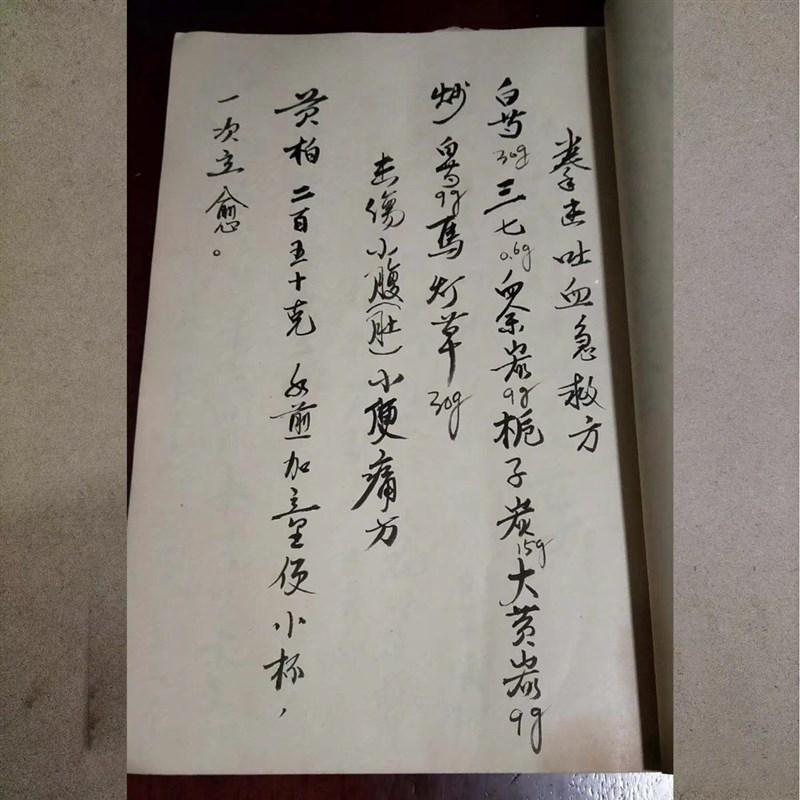 拳击吐血急救方
白芍30g三七0.6g血余炭9g栀子炭15g大黄炭9g
炒白芍9g馬灯草30g
击傷小腹(肚)小便痛方
黄柏二百五十克 水煎加童便小杯，
一次立愈。